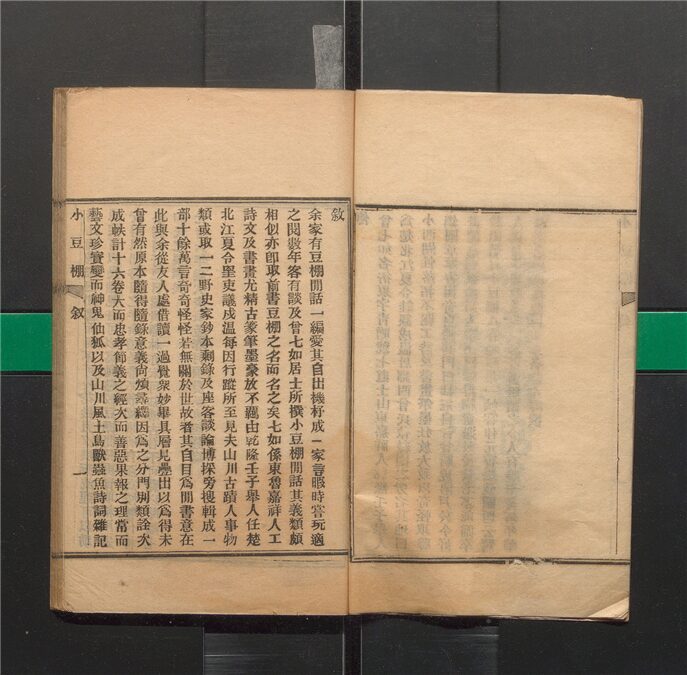 敘
余家有豆棚閒話一編愛其自出機杼成一家言暇時嘗玩適
之閱數年客有談及曾七如居士所撰小豆棚閒話其義類頗
相似亦卽取前書豆棚之名而名之矣七如係東魯嘉祥人工
詩文及書畫尤精古篆筆墨豪放不羈由乾隆壬子舉人任楚
北江夏令罣吏議戍溫每因行蹤所至見夫山川古蹟人事物
類或取一二野史家鈔本剩錄及座客談論博採旁搜輯成一
部十餘萬言奇奇怪怪若無關於世故者其自目爲閒書意在
此與余從友人處借讀一過覺衆妙畢具層見疊出以爲得未
曾有然原本隨得隨錄意義尙煩尋繹因爲之分門別類詮次
成帙計十六卷大而忠孝節義之經次而善惡果報之理常而
藝文珍寶變而神鬼仙狐以及山川風土鳥獸蟲魚詩詞雜記
小豆棚 叙